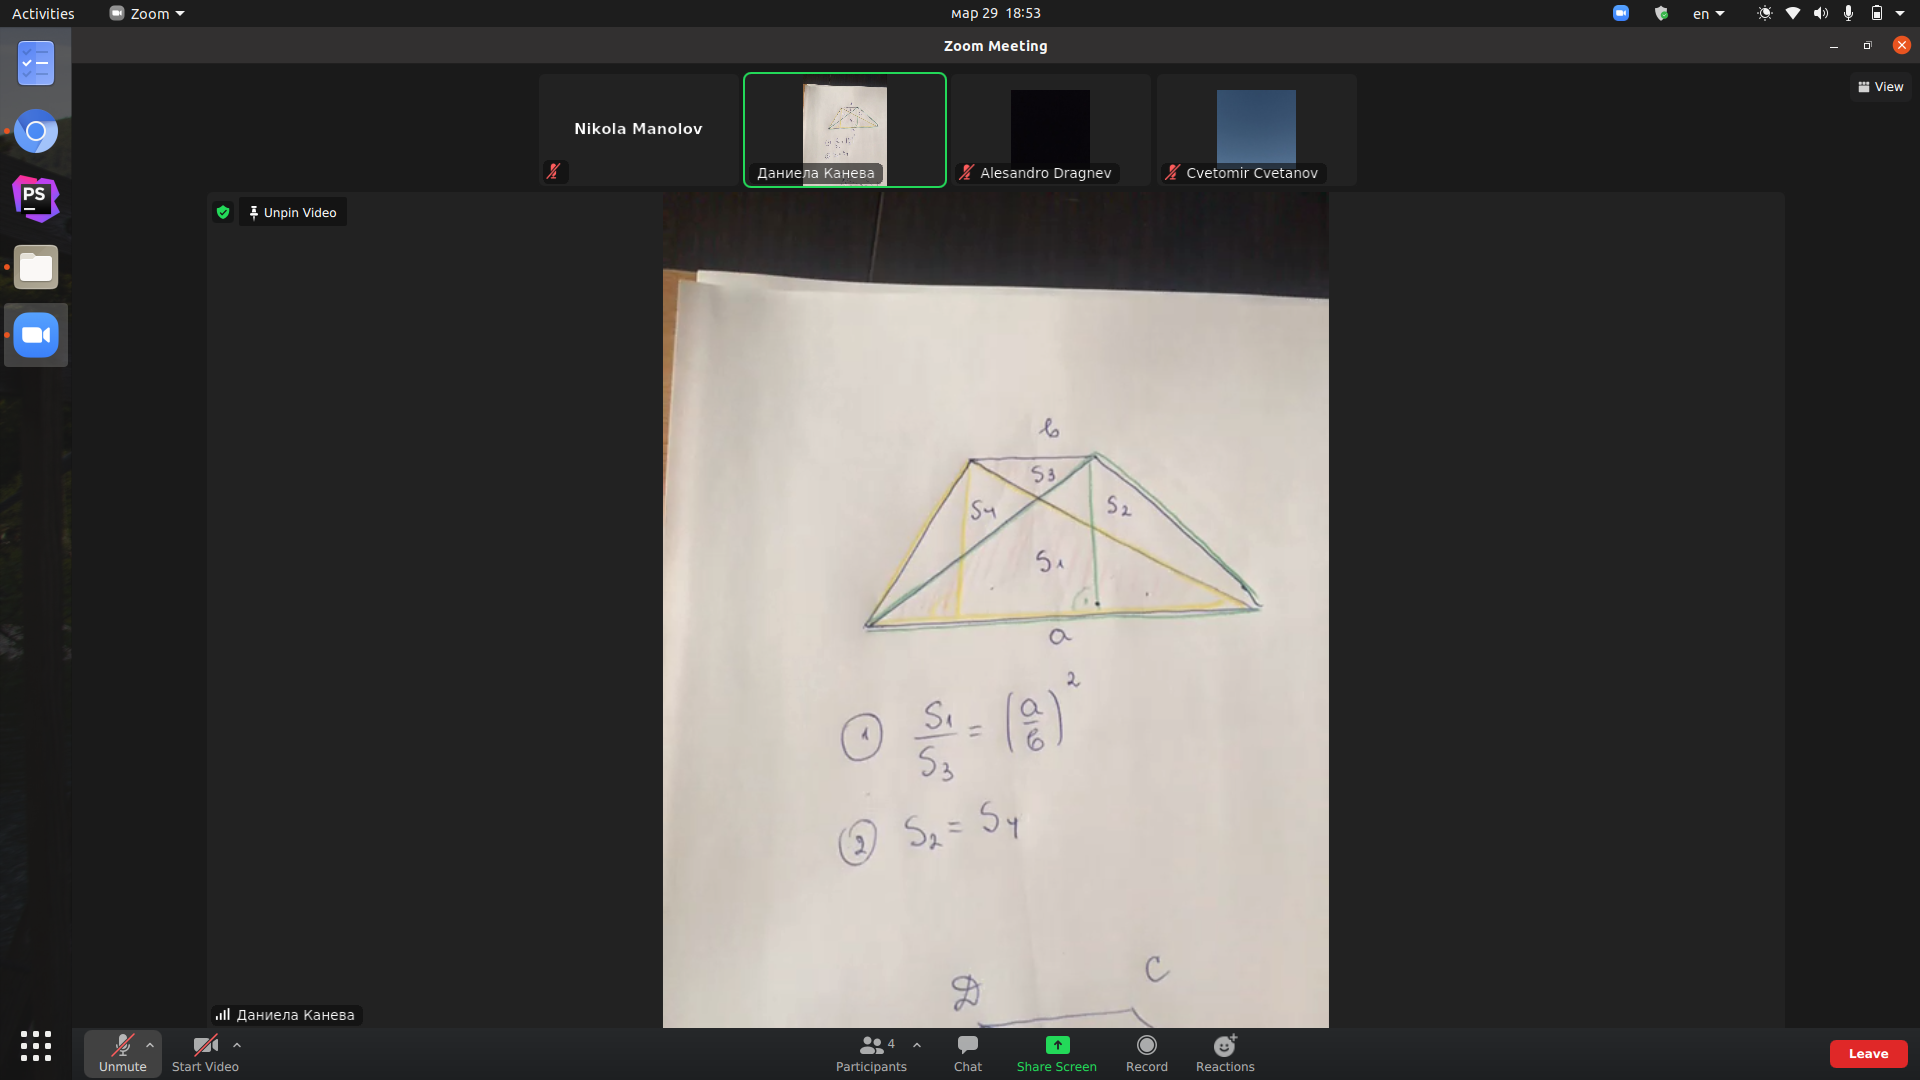 Activities Zoom мар 29 18:53 en
Zoom Meeting
View
Nikola Manolov
Даниела Канева
Alesandro Dragnev
Cvetomir Cvetanov
Unpin Video
PS
в
S3
S4 S2
S1
a
1 S1/S3 = (a/в)²
2 S2 = S4
Д C
Даниела Канева
Unmute Start Video Participants 4 Chat Share Screen Record Reactions Leave